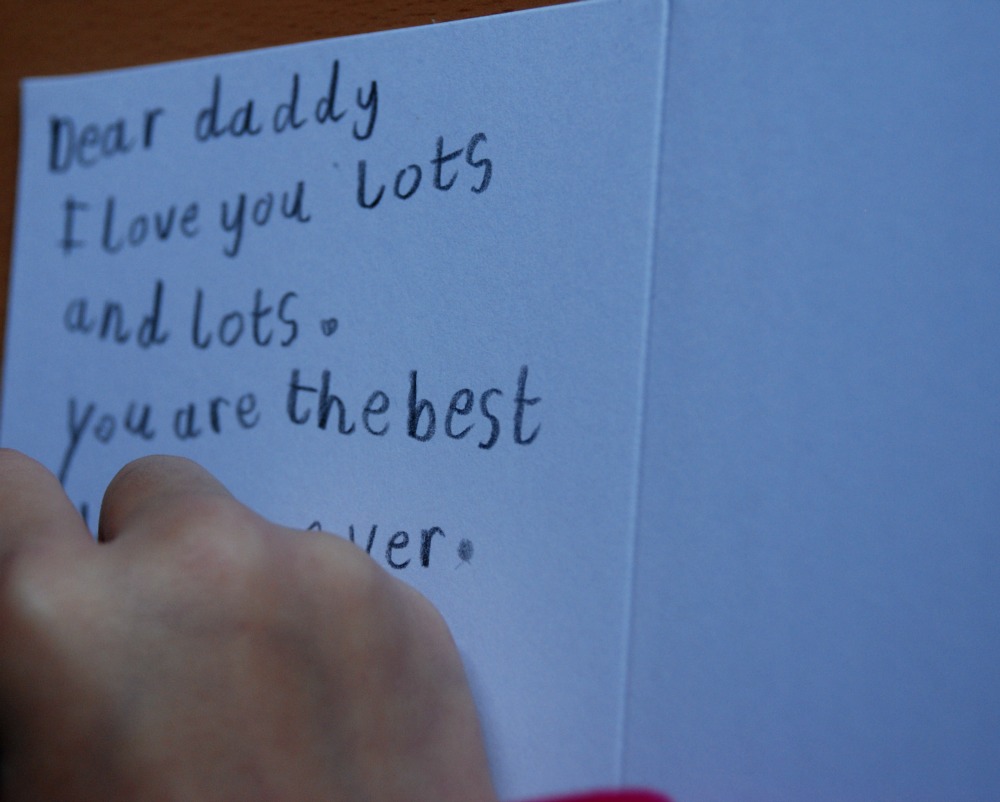 Dear daddy
I love you lots
and lots.
you are the best
ever.